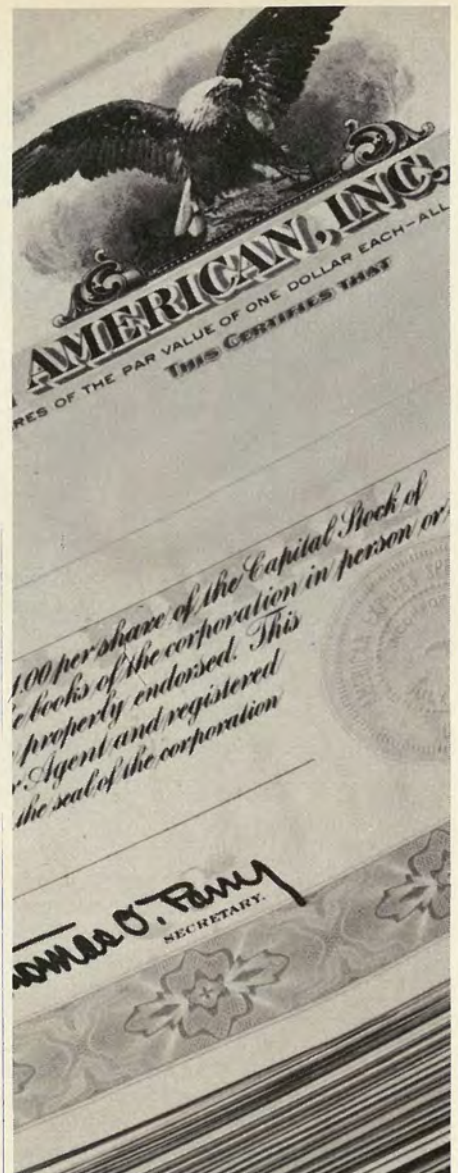 AMERICAN, INC.
RES OF THE PAR VALUE OF ONE DOLLAR EACH-ALL
THIS CERTIFIES THAT
1.00 per share of the Capital Stock of
e books of the corporation in person or
properly endorsed. This
r Agent and registered
the seal of the corporation
omas O. Parry
SECRETARY.